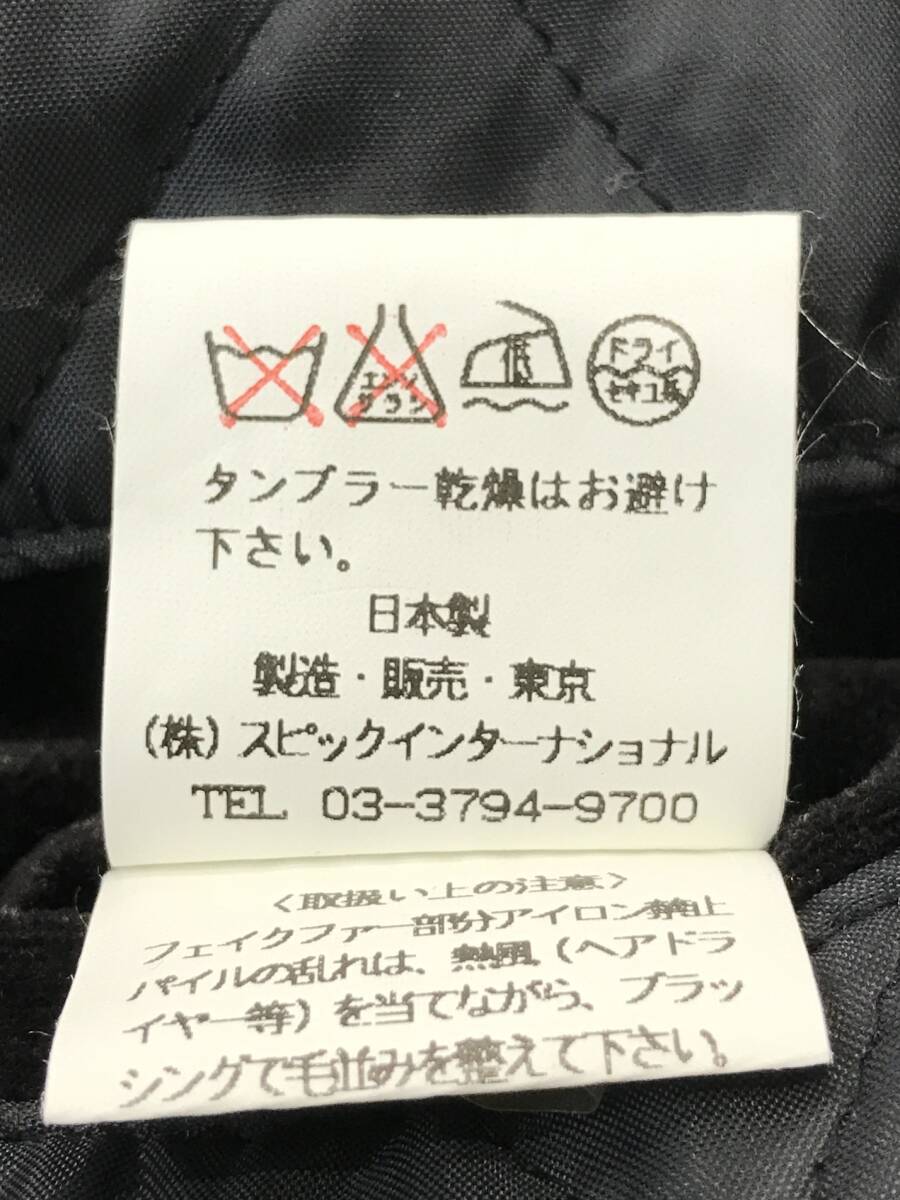 エンソ
サラシ
低
ドライ
セキユ系
タンブラー乾燥はお避け
下さい。
日本製
製造・販売・東京
(株)スピックインターナショナル
TEL 03-3794-9700
<取扱い上の注意>
フェイクファー部分アイロン禁止
パイルの乱れは、熱風(ヘアドラ
イヤー等)を当てながら、ブラッ
シングで毛並みを整えて下さい。